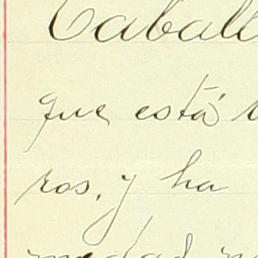 Caball
que está
ros, y ha